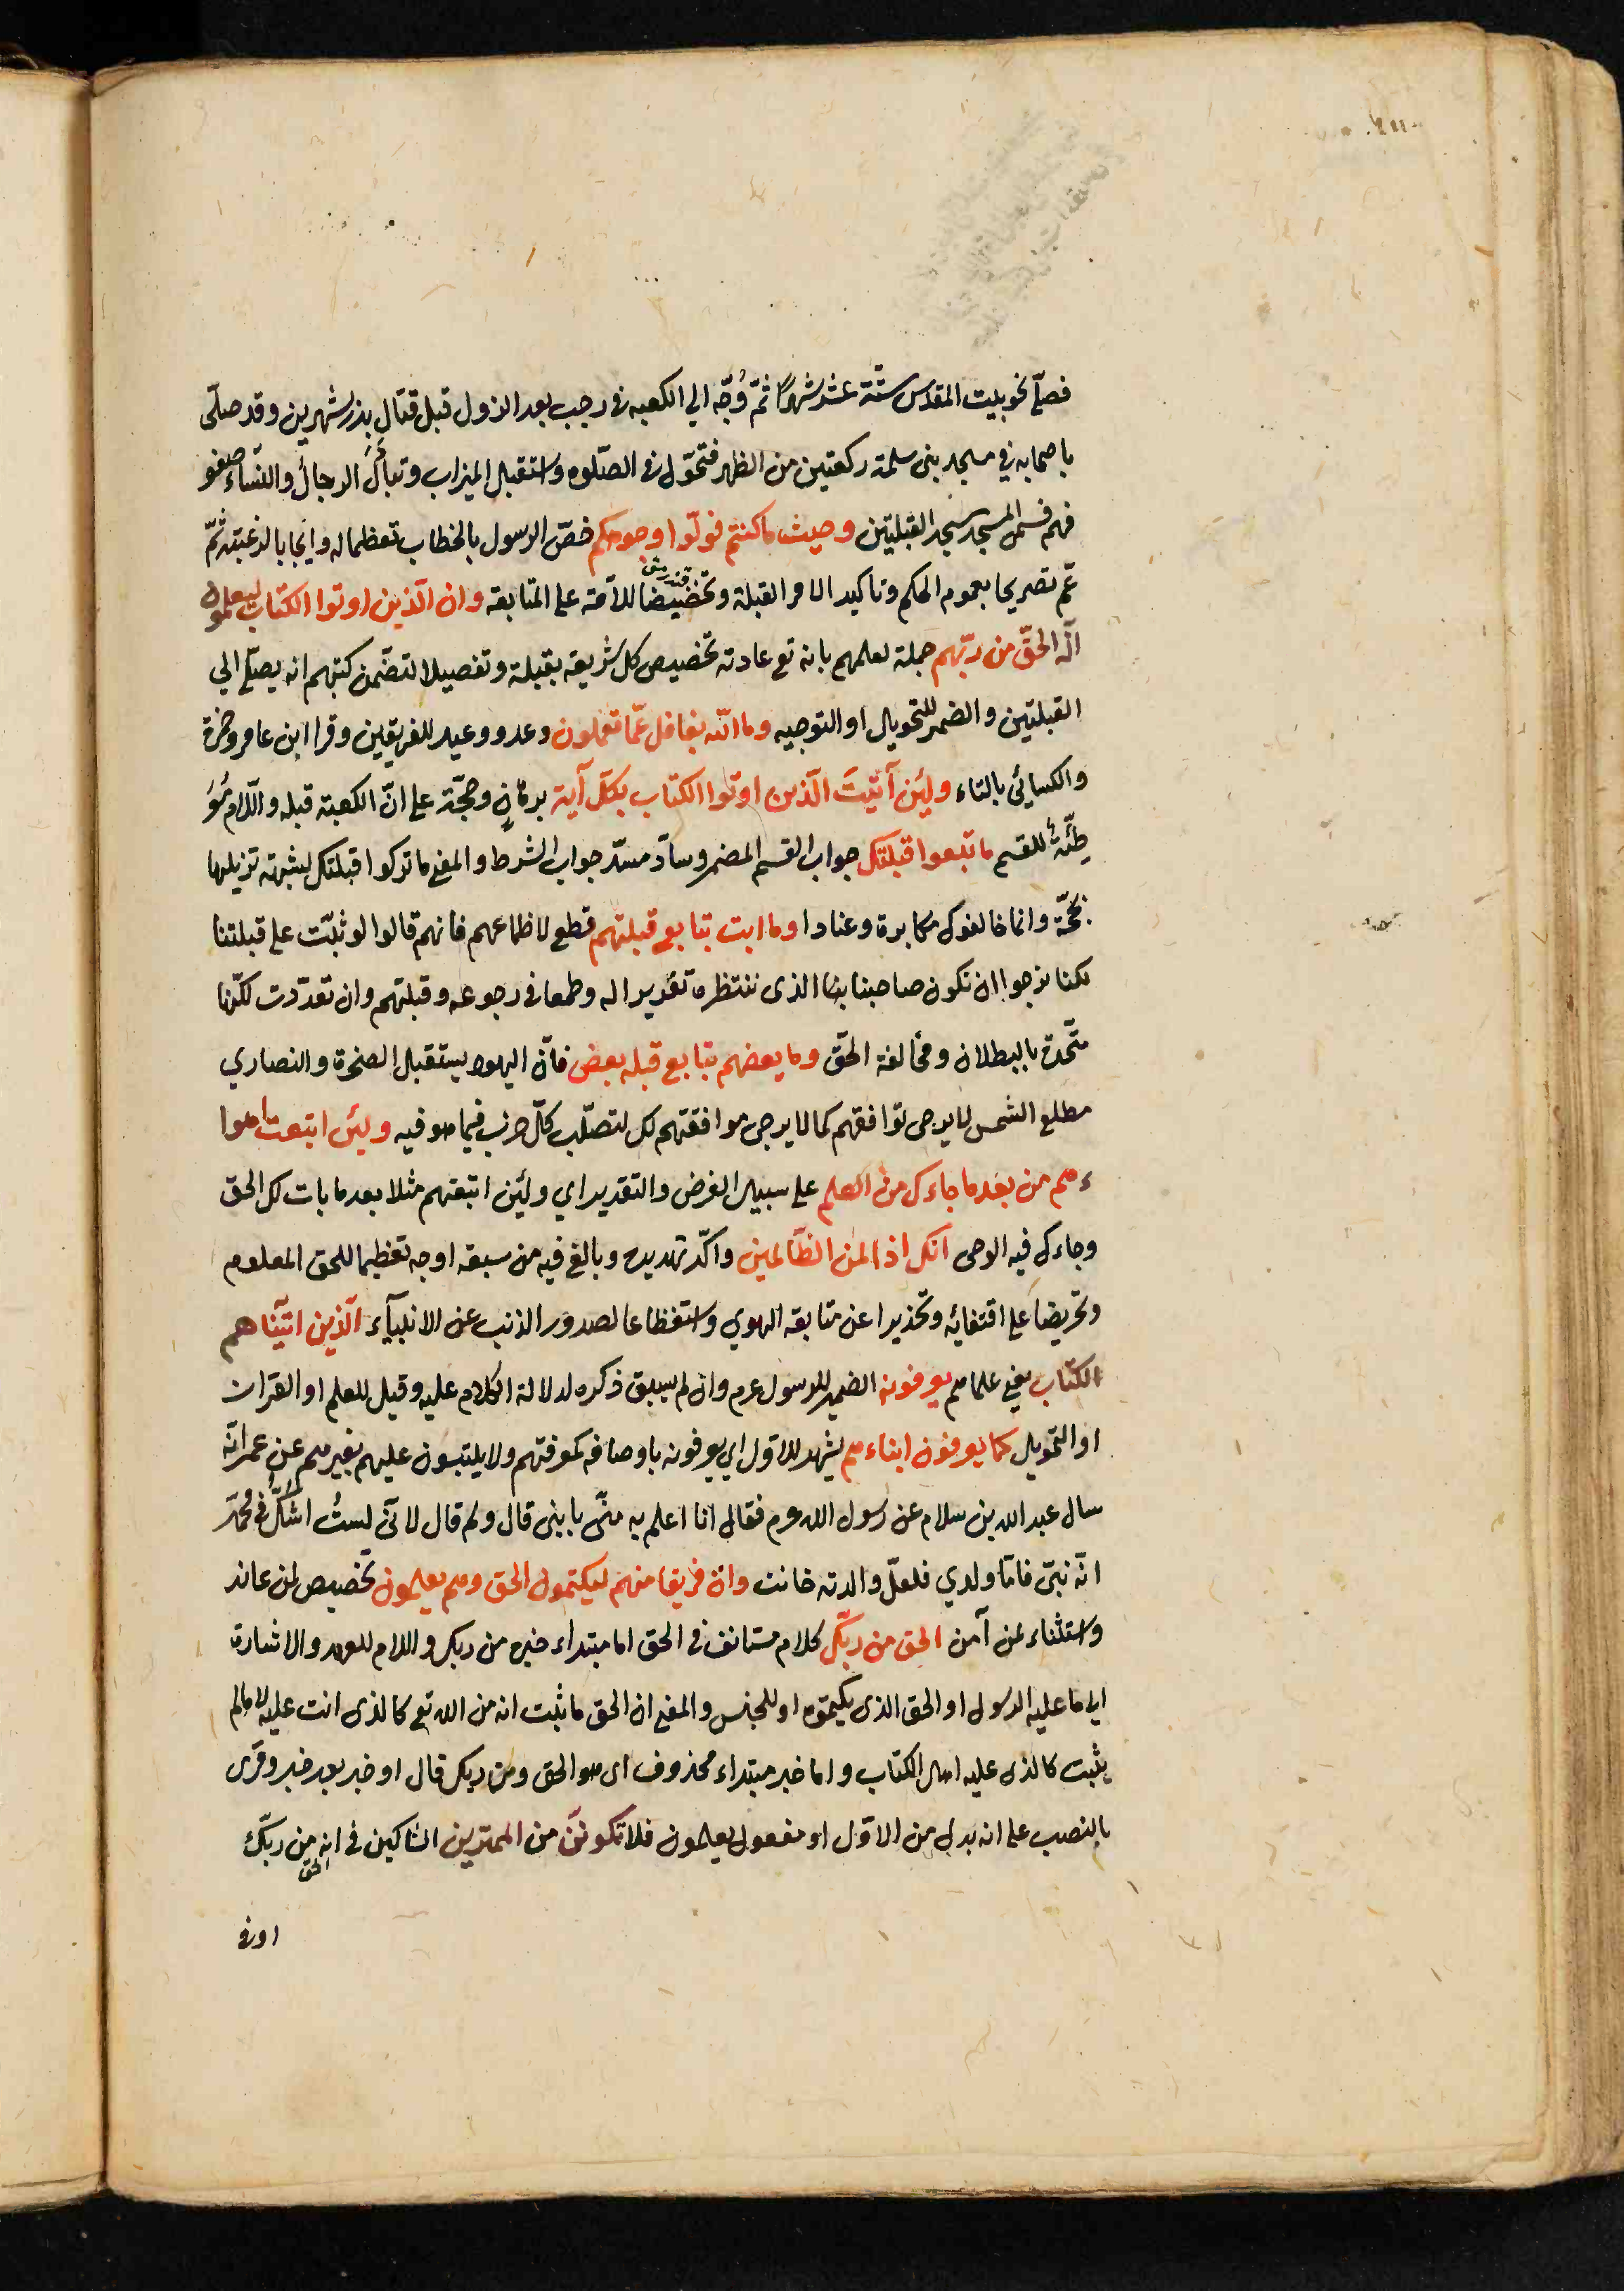 فصلّي نحو بيت المقدس ستّة عشر شهرًا ثمّ وُجّه الي الكعبه في رجب بعد الزوال قبل قتال بذر بشهرين وقد صلّى
باصحابه في مسجد بني سلمة ركعتين من الظهر فتحوّل في الصّلوة واستقبل الميزاب وتبادل الرجالُ والنّساءُ صفو
فهم فسمّى المسجد مسجد القبلتين وحيث ما كنتم فولّوا وجوهكم خصّ الرسول بالخطاب تعظيما له وايجابا لرغبته ثمّ
عمّ تصريحا بعموم الحكم وتاكيدا لامر القبلة وتحضيضا للأمّة على المتابعه وان الّذين اوتوا الكتاب ليعلمون
انّه الحقّ من ربّهم جملة لعلمهم بانه تع عادته تخصيص كل شريعه بقبلة وتفصيلا لتضمّن كتبهم انه يصلّي الي
القبلتين والضمير للتحويل او التوجيه وما الله بغافل عمّا تعملون وعد ووعيد للفريقين وقرا ابن عامر وحمزة
والكسائي بالتاء ولئن آتيتَ الّذين اوتوا الكتاب بكلّ آية برهانٍ وحجّة على انّ الكعبة قبله واللّام مُوَ
طّئةٌ للقسم ما تبعوا قبلتك جواب القسم المضمر وسادّ مسدّ جواب الشرط والمعنى ما تركوا قبلتك لشبهة تزيلها
بحجّة وانما خالفوك مكابرة وعنادا وما انت بتابع قبلتهم قطع لاطماعهم فانهم قالوا لو ثبتّ على قبلتنا
لكنا نرجوا ان تكون صاحبنا الذى ننتظره تغريرا له وطمعا في رجوعه وقبلتهم وان تعدّدت لكنّها
متّحدة بالبطلان ومخالفة الحقّ وما بعضهم بتابع قبلة بعض فانّ اليهود يستقبل الصخرة والنصاري
مطلع الشمس لا يرجى توافقهم كما لا يرجى موافقتهم لك لتصلّب كلّ حزب فيما هو فيه ولئن اتبعت اهوا
ءهم من بعد ما جاءك من العلم على سبيل الفرض والتقدير اي ولئن اتبعتهم مثلا بعد ما بان لك الحق
وجاءك فيه الوحى انك اذا لمن الظّالمين واكّد تهديده وبالغ فيه من سبعه اوجه تعظيما للحق المعلوم
وتحريضا على اقتفائه وتحذيرا عن متابعة الهوي واستفظاعا لصدور الذنب عن الانبيآء الّذين اتيناهم
الكتاب يعنى علماءهم يعرفونه الضمير للرسول عم وان لم يسبق ذكره لدلالة الكلام عليه وقيل للعلم او القران
او التحويل كما يعرفون ابناءهم يشهد للاوّل اي يعرفونه باوصافه كمعرفتهم ولا يلتبسون عليهم بغيرهم عن عمر انّه
سال عبد الله بن سلام عن رسول الله عم فقال انا اعلم به منّى بابنى قال ولم قال لانّى لستُ اشكّ في محمّد
انّه نبيّ فامّا ولدي فلعلّ والدته خانت وان فريقا منهم ليكتمون الحق وهم يعلمون تخصيص لمن عاند
واستثناء لمن آمن الحق من ربّك كلام مستانف في الحق اما مبتداء خبره من ربك واللام للعهد والاشارة
الى ما عليه الرسول او الحق الذى يكتمونه او للجنس والمعنى ان الحق ما ثبت انه من الله تع كالذى انت عليه لا ما لم
يثبت كالذى عليه اهل الكتاب واما خبر مبتداء محذوف اى هو الحق ومن ربك قال او خبر بعد خبر وقرى
بالنصب على انه بدل من الاوّل او مفعول يعلمون فلا تكوننّ من الممترين الشاكين في انه من ربّك
الحق
اوفى